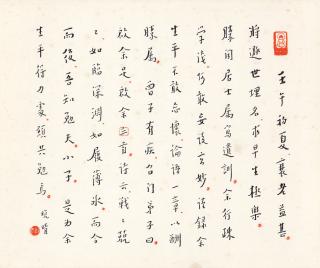 壬午初夏衰老益甚
將遯世埋名求早生極樂
勝闓居士属寫遺訓余行疎
學淺何敢妄談玄妙謹錄余
生平不敢忘懷論語一章以酬
勝属 曾子有疾召門弟子曰
啟余足啟余手詩云戰〻兢
〻如臨深淵如履薄冰而今
而後吾知免夫小子 是為余
生平得力處願共勉焉 晚晴